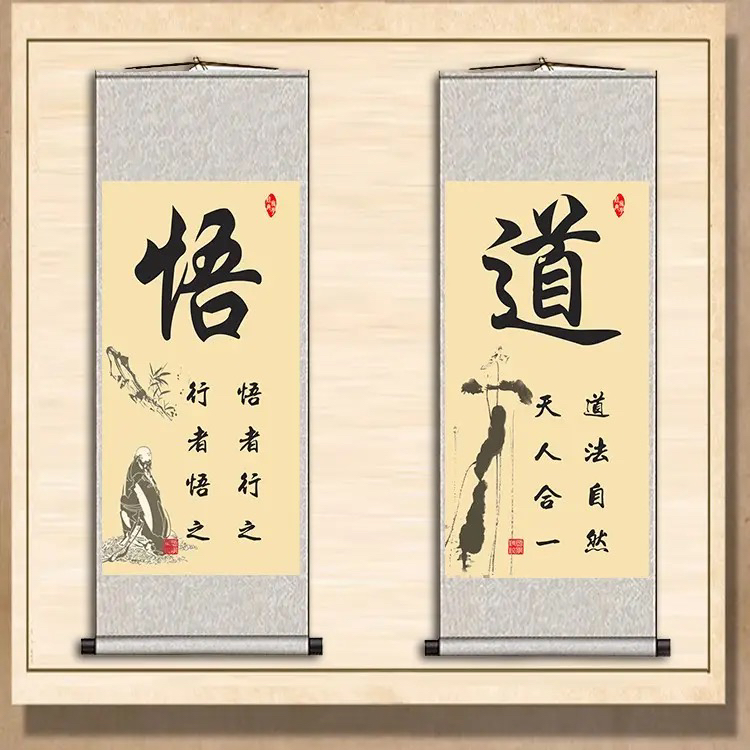 悟
悟者行之
行者悟之
道
道法自然
天人合一